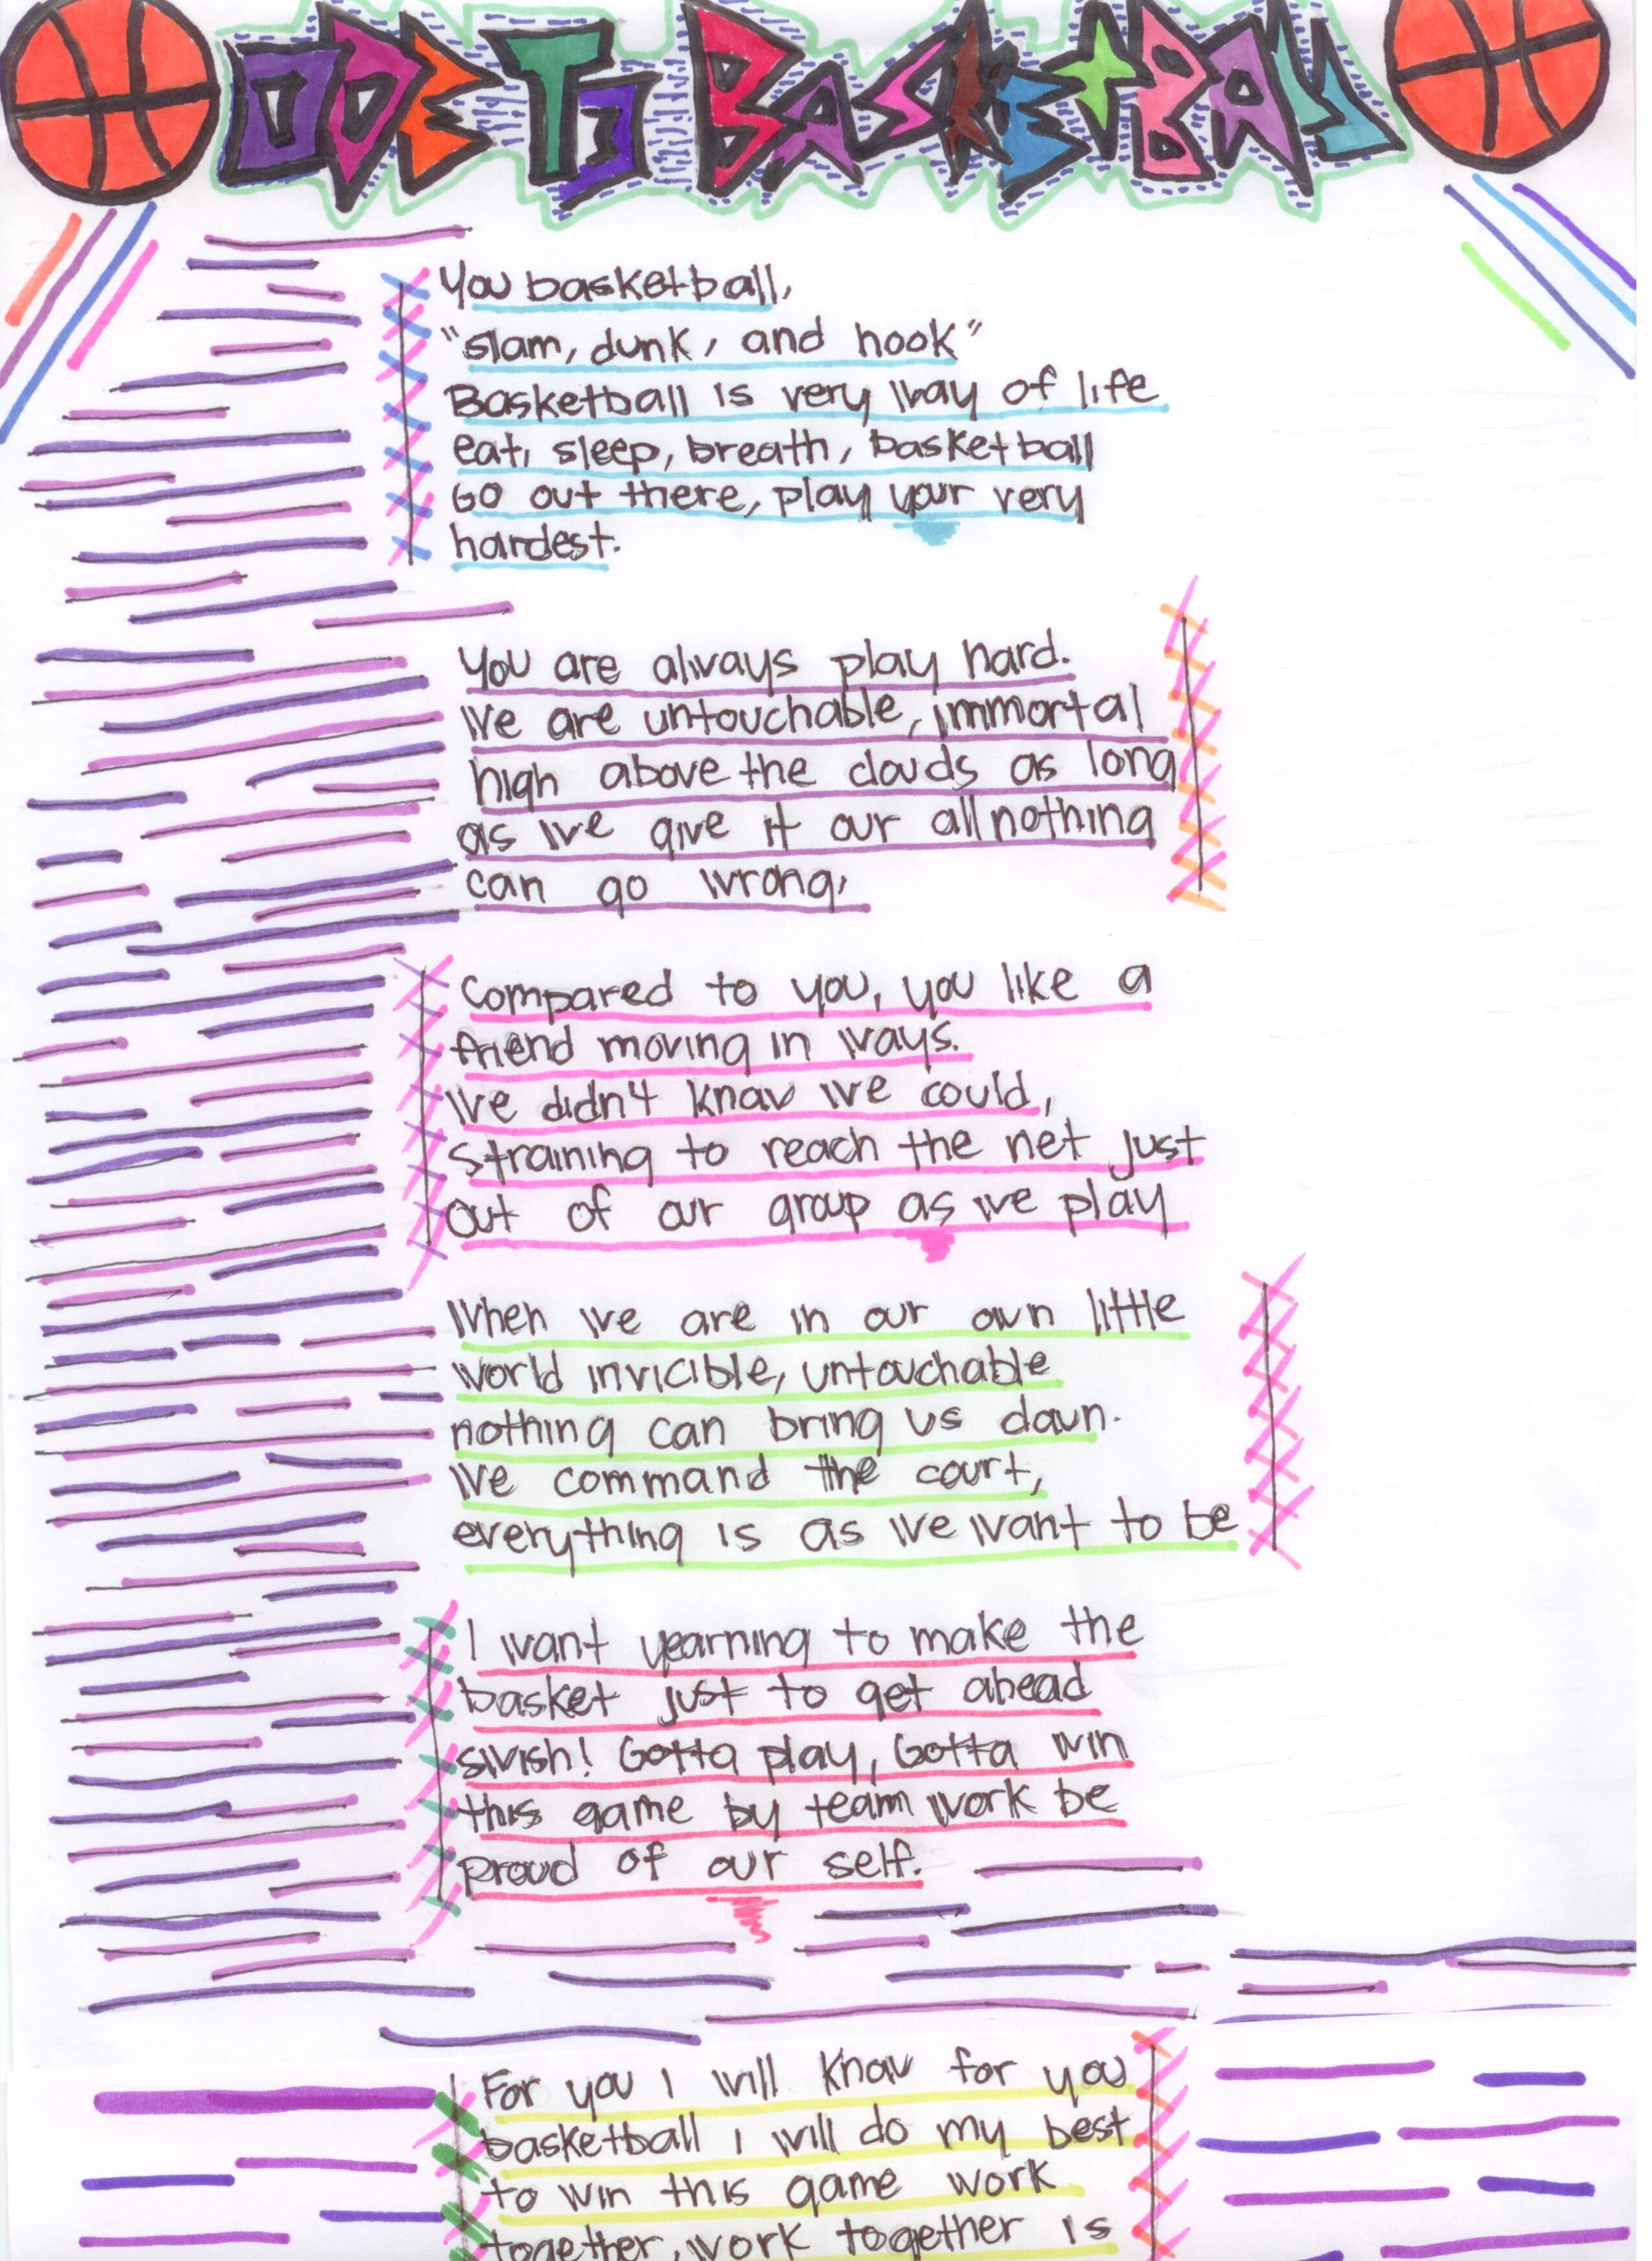 ODE To BASKETBALL
You basketball,
"slam, dunk, and hook"
Basketball is very way of life
eat, sleep, breath, basketball
Go out there, play your very
hardest.
You are always play hard.
We are untouchable, immortal
high above the clouds as long
as we give it our all nothing
can go wrong,
Compared to you, you like a
friend moving in ways.
We didn't know we could,
straining to reach the net just
out of our group as we play
When we are in our own little
world invicible, untouchable
nothing can bring us down.
We command the court,
everything is as we want to be
I want yearning to make the
basket just to get ahead
swish! Gotta play, Gotta win
this game by team work be
proud of our self.
For you I will know for you
basketball I will do my best
to win this game work
together, work together is